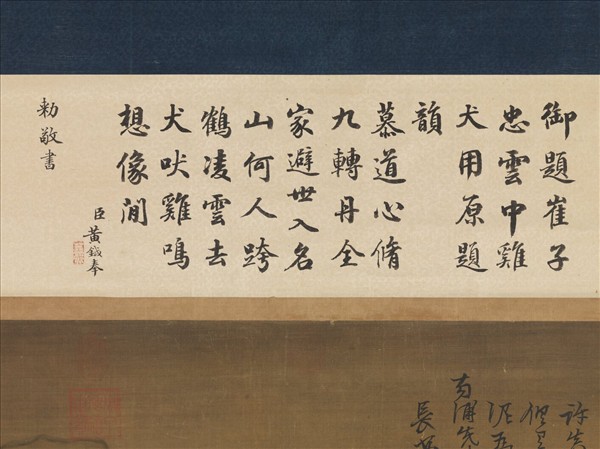 御題崔子
忠雲中雞
犬用原題
韻
慕道心脩
九轉丹全
家避世入名
山何人跨
鶴凌雲去
犬吠雞鳴
想像閒
臣黃鉞奉
勅敬書
許
但
泥
南浦先
長